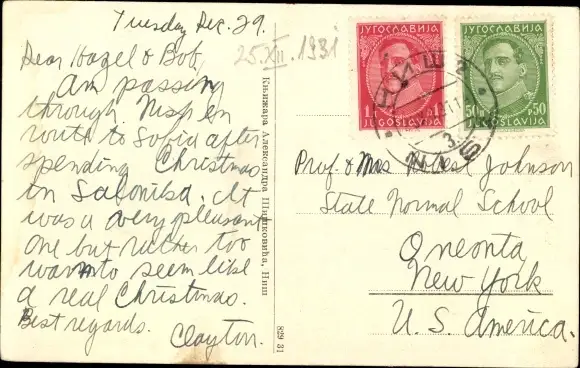 Tuesday Dec. 29.
25.XII.1931
Dear Hazel & Bob,
Am passing
through Nish en
route to Sofia after
spending Christmas
in Salonika. It
was a very pleasant
one but rather too
warm to seem like
a real Christmas.
Best regards.
Clayton.
Књижара Александра Шишковића, Ниш
829 31
ЈУГОСЛАВИЈА
JUGOSLAVIJA
ЈУГОСЛАВИЈА
50 P 50
JUGOSLAVIJA
НИШ 2
Prof. & Mrs Johnson
State Normal School
Oneonta
New York
U. S. America.